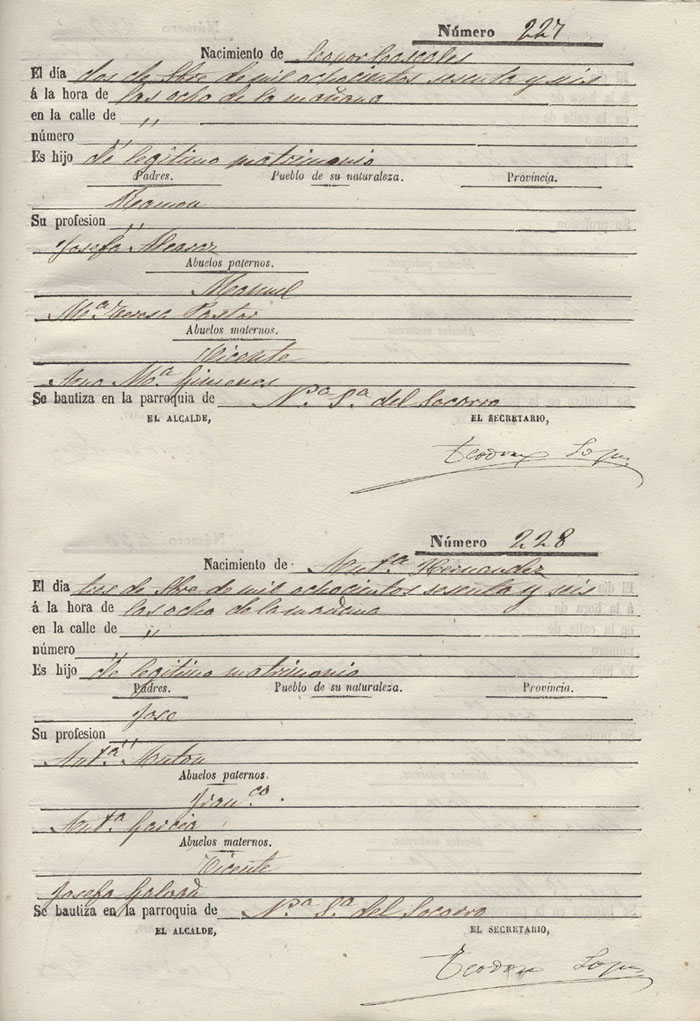 Número 227
Nacimiento de Leonor Cascales
El dia dos de 9bre de mil ochocientos sesenta y seis
á la hora de las ocho de la mañana
en la calle de "
número "
Es hijo de legitimo matrimonio
Padres. Pueblo de su naturaleza. Provincia.
Ramon
Su profesion "
Josefa Alcaraz
Abuelos paternos.
Manuel
Mª Teresa Pastor
Abuelos maternos.
Vicente
Ana Mª Gimenes
Se bautiza en la parroquia de Nª Sª del Socorro
EL ALCALDE, EL SECRETARIO,
Número 228
Nacimiento de Antª Hernandez
El dia tres de 9bre de mil ochocientos sesenta y seis
á la hora de las ocho de la mañana
en la calle de "
número "
Es hijo de legitimo matrimonio
Padres. Pueblo de su naturaleza. Provincia.
Jose
Su profesion "
Antª Anton
Abuelos paternos.
Franco.
Antª Garcia
Abuelos maternos.
Vicente
Josefa Galvañ
Se bautiza en la parroquia de Nª Sª del Socorro
EL ALCALDE, EL SECRETARIO,